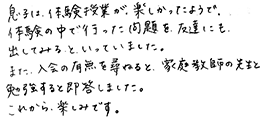 息子は、体験授業が、楽しかったようで、
体験の中で行った問題を、友達にも、
出してみる、といっていました。
また、入会の有無を尋ねると、家庭教師の先生と
勉強すると即答しました。
これから、楽しみです。